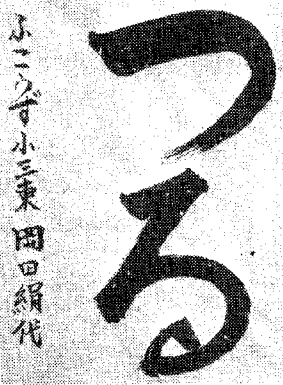 つる
ふこうず小三東 岡田絹代